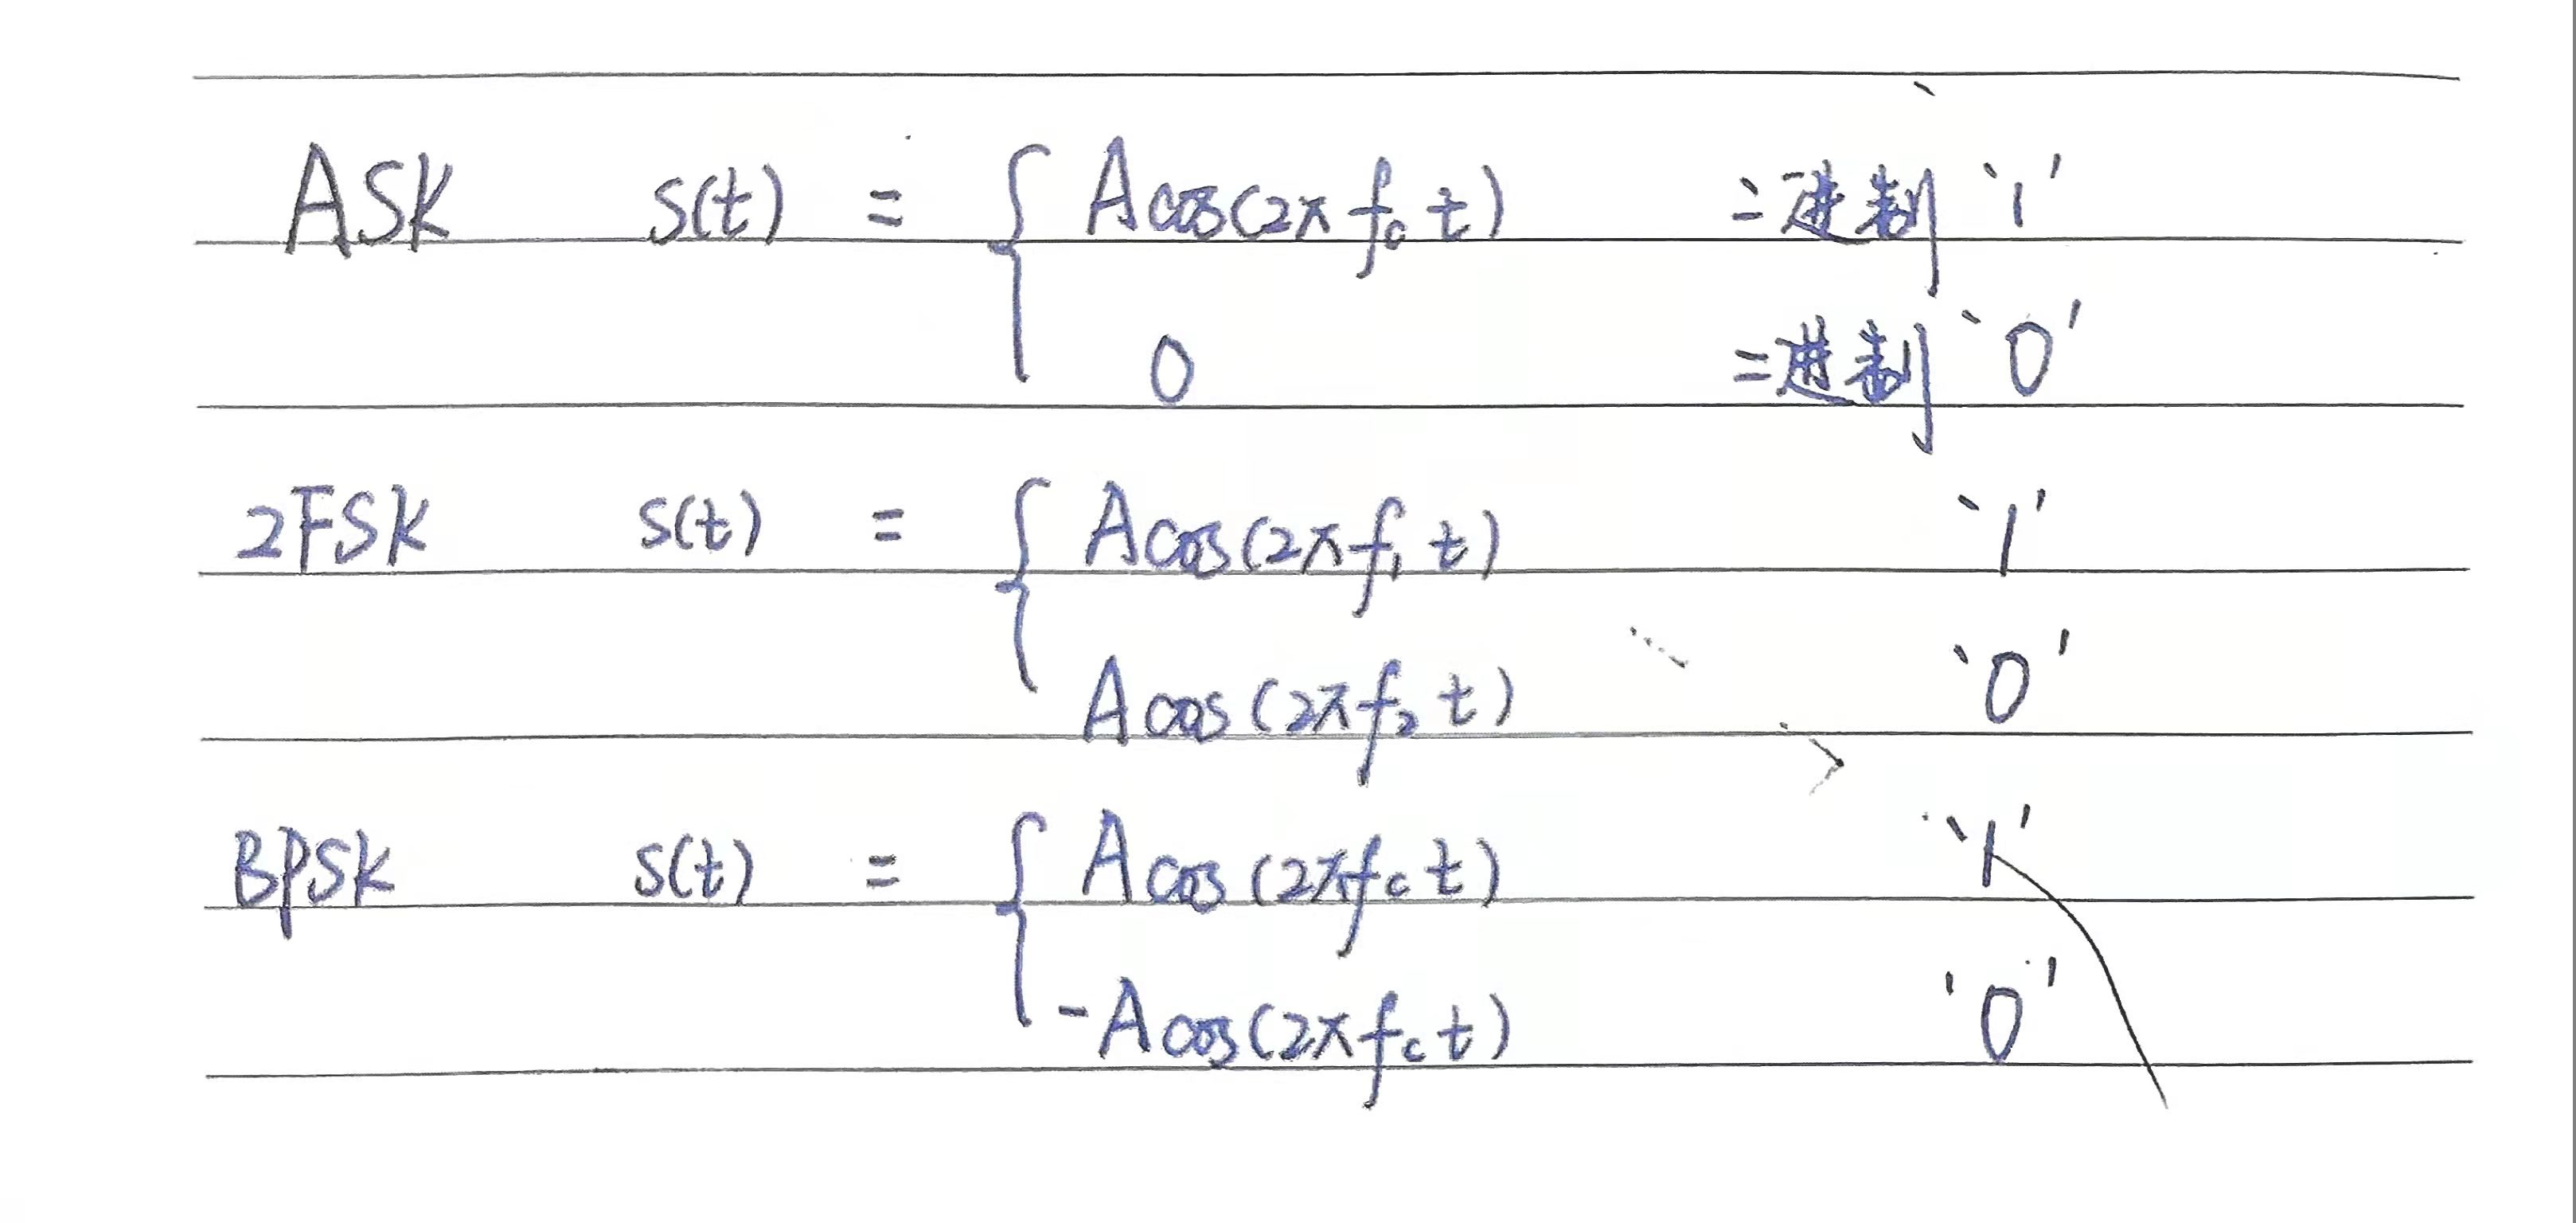 ASK s(t) = { A cos(2π fc t) 二进制 '1'
0 二进制 '0'
2FSK s(t) = { A cos(2π f1 t) '1'
A cos(2π f2 t) '0'
BPSK s(t) = { A cos(2π fc t) '1'
-A cos(2π fc t) '0'